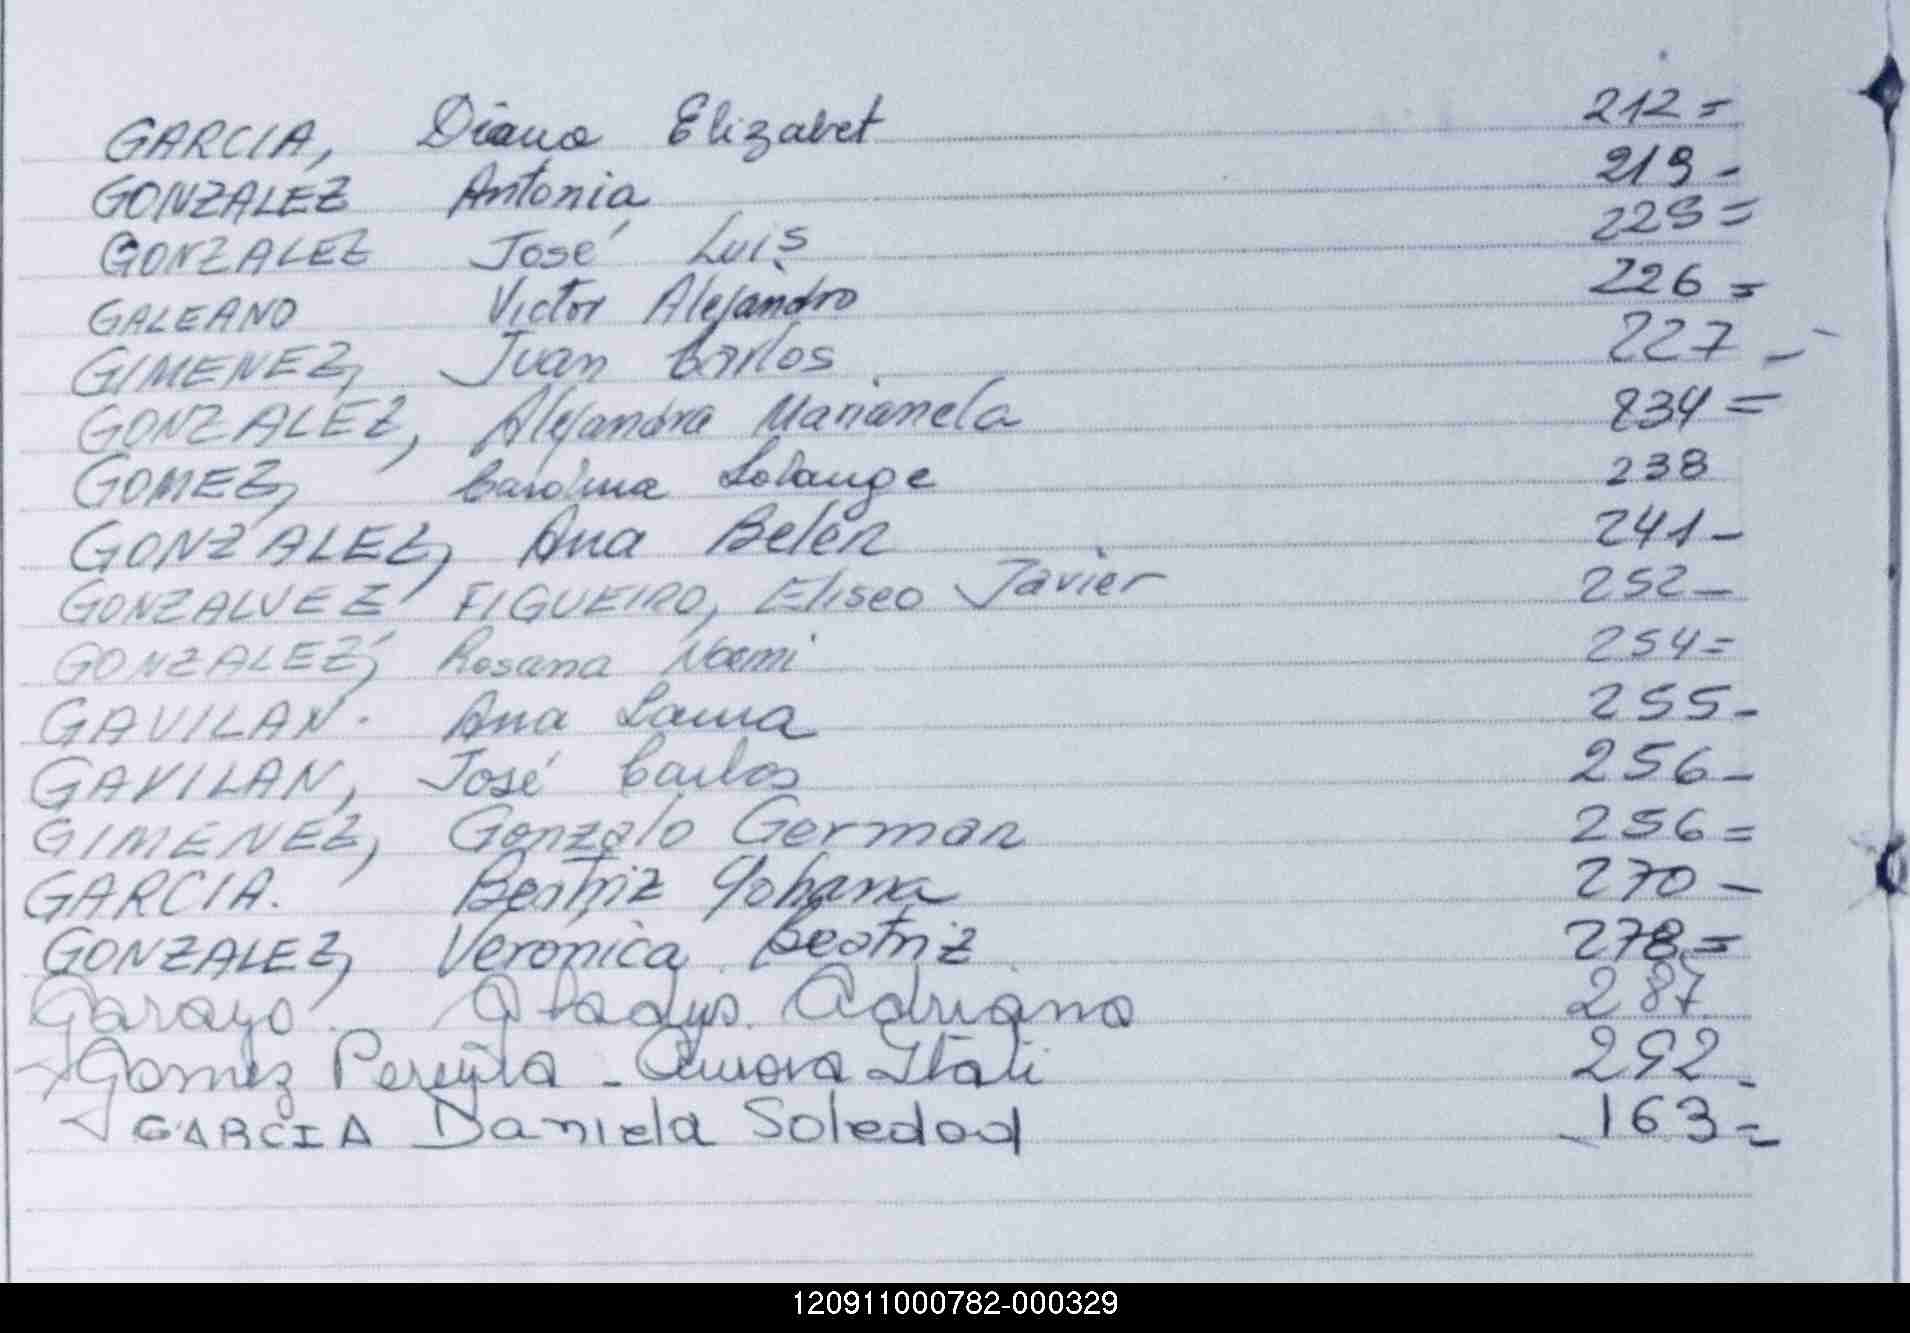 GARCIA, Diana Elizabet 212=
GONZALEZ Antonia 219-
GONZALEZ José Luis 225=
GALEANO Victor Alejandro 226=
GIMENEZ, Juan Carlos 227-
GONZALEZ, Alejandra Marianela 234=
GOMEZ, Carolina Solange 238
GONZALEZ, Ana Belén 241-
GONZALVEZ FIGUEIRO, Eliseo Javier 252-
GONZALEZ, Rosana Noemi 254=
GAVILAN. Ana Laura 255-
GAVILAN, José Carlos 256-
GIMENEZ, Gonzalo German 256=
GARCIA. Beatriz Yohana 270-
GONZALEZ, Veronica Beatriz 278=
Garayo Gladys Adriana 287
Gomez Pereyra - Aurora Itati 292-
GARCIA Daniela Soledad 163=
120911000782-000329